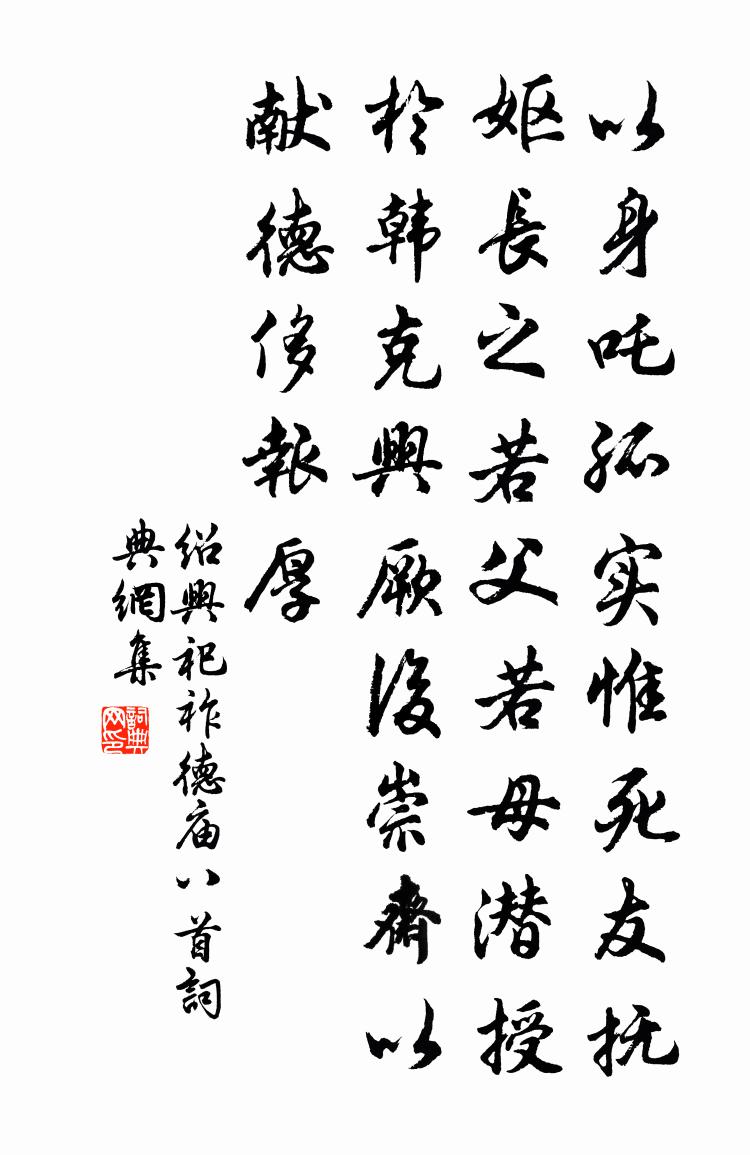 以身吒孤实惟死友抚
妪長之若父若母潜授
於韩克興厥後崇齋以
献德侈報厚
绍興祀祚德庙八首詞
典網集
詞典
网印